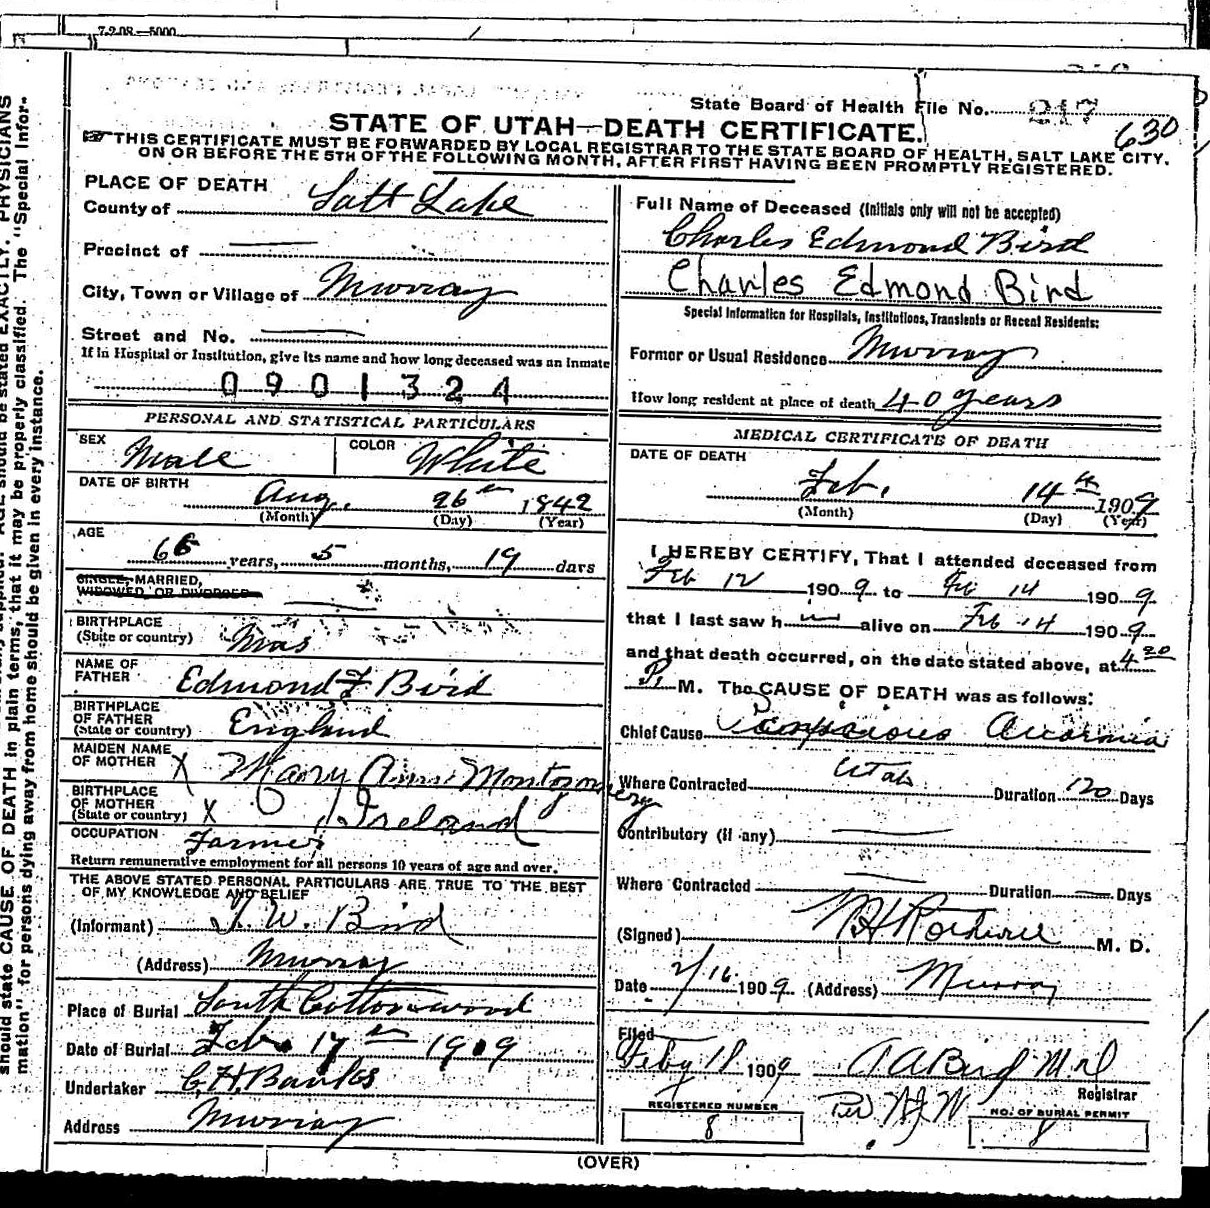 7-2-08—5000
State Board of Health File No. 217
630
STATE OF UTAH—DEATH CERTIFICATE.
THIS CERTIFICATE MUST BE FORWARDED BY LOCAL REGISTRAR TO THE STATE BOARD OF HEALTH, SALT LAKE CITY,
ON OR BEFORE THE 5TH OF THE FOLLOWING MONTH, AFTER FIRST HAVING BEEN PROMPTLY REGISTERED.
PLACE OF DEATH
County of Salt Lake
Precinct of
City, Town or Village of Murray
Street and No.
If in Hospital or Institution, give its name and how long deceased was an inmate
0901324
PERSONAL AND STATISTICAL PARTICULARS
SEX Male COLOR White
DATE OF BIRTH
Aug. 26th 1842
(Month) (Day) (Year)
AGE
66 years, 5 months, 19 days
SINGLE, MARRIED,
WIDOWED, OR DIVORCED
BIRTHPLACE
(State or country) Mas
NAME OF
FATHER Edmond F Bird
BIRTHPLACE
OF FATHER
(State or country) England
MAIDEN NAME
OF MOTHER X Mary Ann Montgomery
BIRTHPLACE
OF MOTHER
(State or country) X Ireland
OCCUPATION Farmer
Return remunerative employment for all persons 10 years of age and over.
THE ABOVE STATED PERSONAL PARTICULARS ARE TRUE TO THE BEST
OF MY KNOWLEDGE AND BELIEF
(Informant) J. W. Bird
(Address) Murray
Place of Burial South Cottonwood
Date of Burial Feb. 17th 1909
Undertaker C H Banks
Address Murray
Full Name of Deceased (Initials only will not be accepted)
Charles Edmond Bird
Charles Edmond Bird
Special Information for Hospitals, Institutions, Transients or Recent Residents:
Former or Usual Residence Murray
How long resident at place of death 40 years
MEDICAL CERTIFICATE OF DEATH
DATE OF DEATH
Feb. 14th 1909
(Month) (Day) (Year)
I HEREBY CERTIFY, That I attended deceased from
Feb 12 1909 to Feb 14 1909
that I last saw h alive on Feb 14 1909
and that death occurred, on the date stated above, at 4 20
P. M. The CAUSE OF DEATH was as follows:
Chief Cause Pernicious
Where Contracted Utah Duration 120 Days
Contributory (if any)
Where Contracted Duration Days
(Signed) M. D.
Date 2/16 1909 (Address) Murray
Filed
Feby 18 1909
Registrar
Per
REGISTERED NUMBER
8
NO. OF BURIAL PERMIT
8
(OVER)
should state CAUSE OF DEATH in plain terms, that it may be properly classified. The "Special Infor-
mation" for persons dying away from home should be given in every instance.